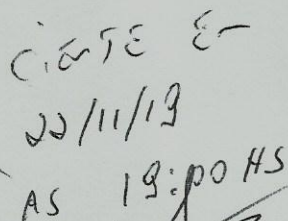 CIENTE EM
22/11/19
AS 19:00 HS